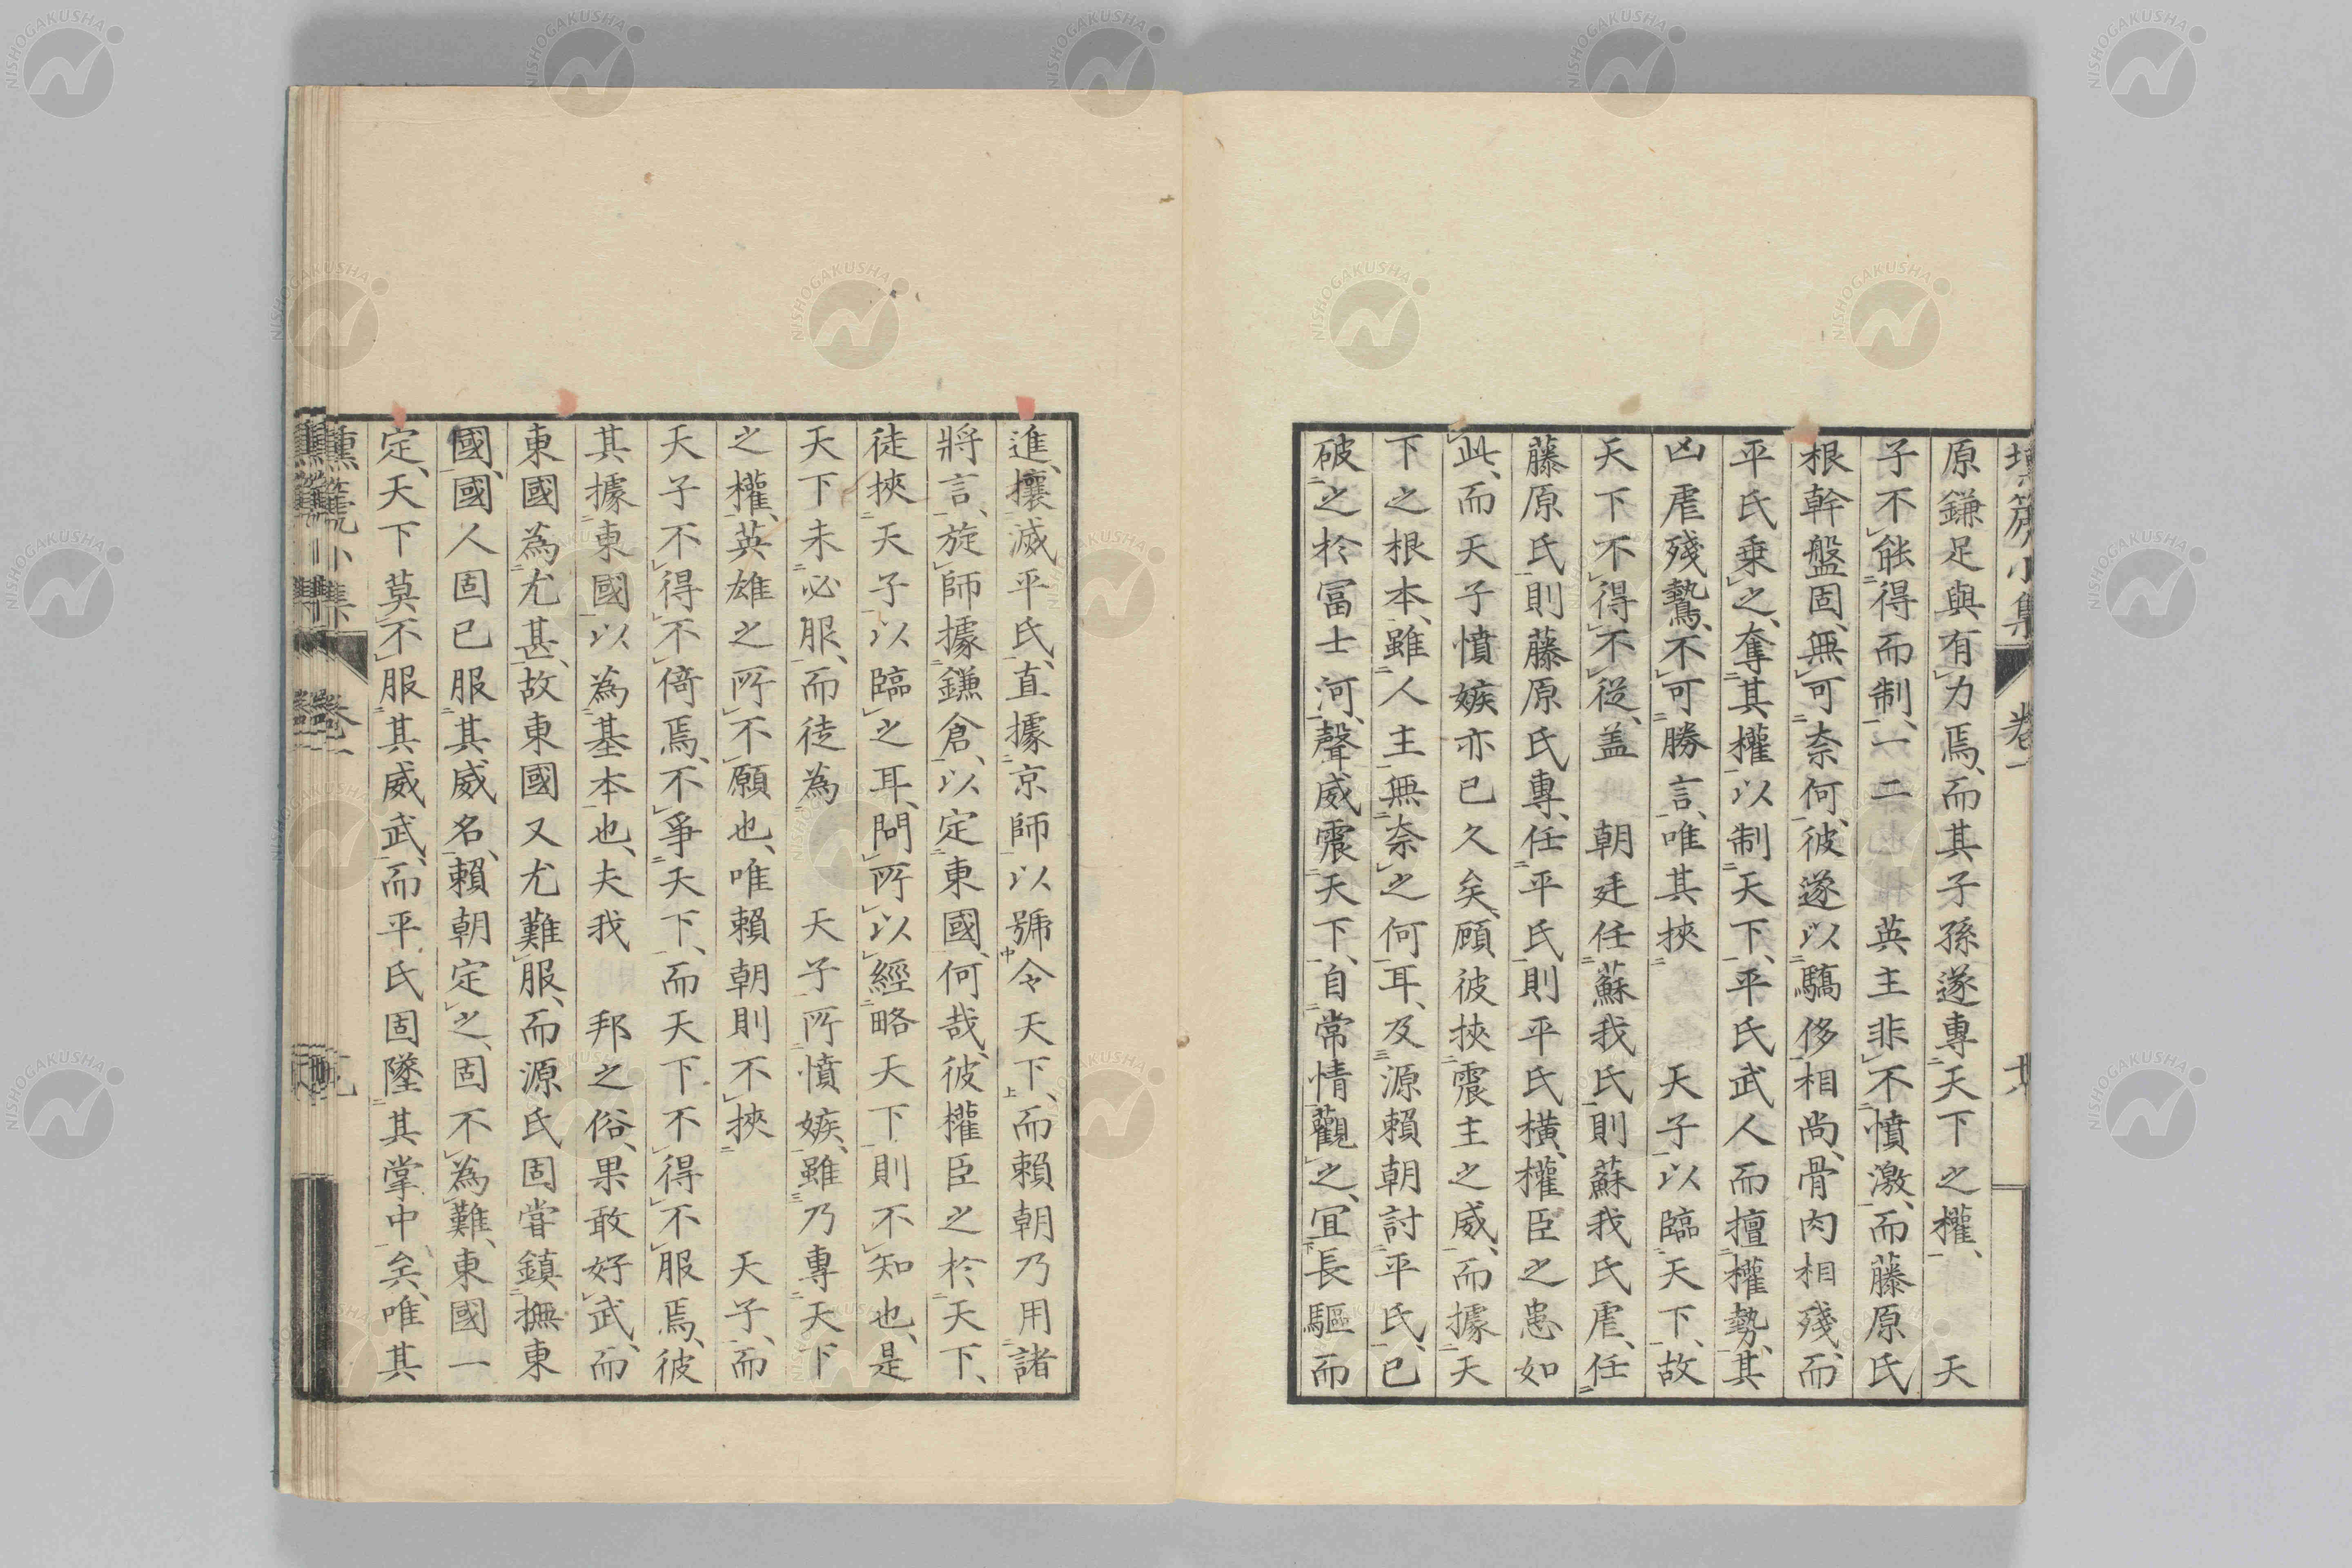 原鎌足與有力焉、而其子孫遂專天下之權、 天
子不能得而制、一二 英主非不憤激、而藤原氏
根幹盤固、無可奈何、彼遂以驕侈相尚、骨肉相殘、而
平氏乗之、奪其權以制天下、平氏武人而擅權勢、其
凶虐殘鷙、不可勝言、唯其挾 天子以臨天下、故
天下不得不從、盖 朝廷任蘇我氏、則蘇我氏虐、任
藤原氏則藤原氏專、任平氏則平氏横、權臣之患如
此、而天子憤嫉亦已久矣、顧彼挾震主之威、而據天
下之根本、雖人主無奈之何耳、及源頼朝討平氏、已
破之於冨士河、聲威震天下、自常情觀之、冝長驅而
進、攘滅平氏、直據京師以號令天下、而頼朝乃用諸
將言、旋師據鎌倉、以定東國、何哉、彼權臣之於天下、
徒挾天子以臨之耳、問所以經略天下則不知也、是
天下未必服、而徒為 天子所憤嫉、雖乃專天下
之權、英雄之所不願也、唯頼朝則不挾 天子、而
天子不得不倚焉、不爭天下、而天下不得不服焉、彼
其據東國以為基本也、夫我 邦之俗、果敢好武、而
東國為尤甚、故東國又尤難服、而源氏固嘗鎮撫東
國、國人固已服其威名、頼朝定之、固不為難、東國一
定、天下莫不服其威武、而平氏固墜其掌中矣、唯其
小集 卷一
NISHOGAKUSHA